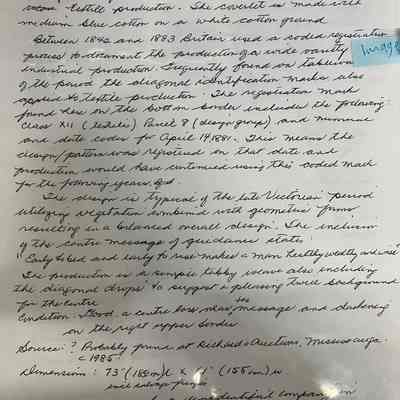 textile production. The coverlet is made with
medium blue cotton on a white cotton ground
Between 1842 and 1883 Britain used a coded registration
process to document the production of a wide variety
industrial production. Frequently found on tablewares
of the period the diagonal identification marks also
applied to textile production. The registration mark
found here on the bottom border includes the following:
Class XII (textiles) Parcel 8 (design group) and numeral
and date codes for April 14, 1881. This means the
design/pattern was registered on that date and
production would have continued using this coded mark
for the following years
The design is typical of the late Victorian period
utilizing vegetation combined with geometric forms
resulting in a balanced overall design. The inclusion
of the centre message of guidance states
"Early to bed and early to rise makes a man healthy wealthy and wise"
The production is a simple tabby weave also including
the diagonal drops to suggest a pleasing background
for the centre
Condition: Good, a centre message and darkening
on the right upper border
Source: ? Probably found at Richard's Auctions, Mississauga
c 1985
Dimensions: 73" L x 61" (155 cm) w
Image